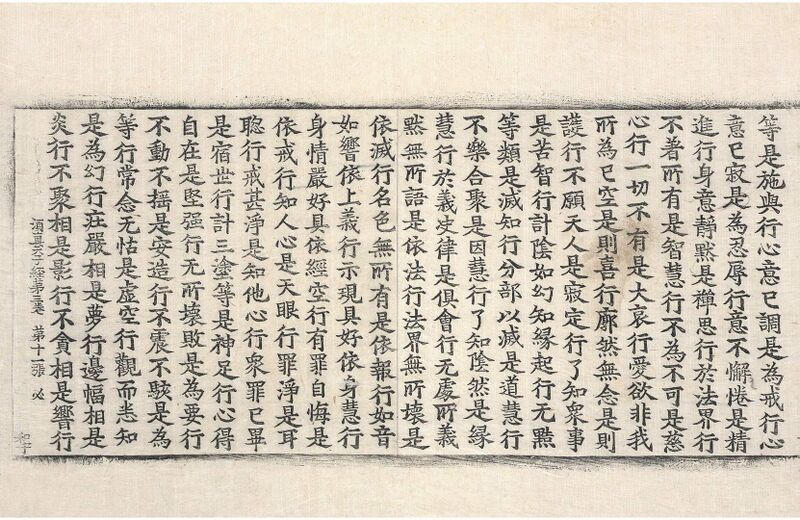 等是施與行心意已調是為戒行心
意已寂是為忍辱行意不懈惓是精
進行身意靜黙是禪思行於法界行
不著所有是智慧行不為不可是慈
心行一切不有是大哀行愛欲非我
所為已空是則喜行廓然無念是則
護行不願天人是寂定行了知衆事
是苦智行計陰如幻知緣起行无㸃
等類是滅知行分部以滅是道慧行
不樂合聚是因慧行了知陰然是緣
慧行於義史律是俱會行无處所義
黙無所語是依法行法界無所壞是
依滅行名色無所有是依報行如音
如響依上義行示現具好依身慧行
身情嚴好具依經空行有罪自悔是
依戒行知人心是天眼行罪淨是耳
聦行戒甚淨是知他心行衆罪已畢
是宿世行計三塗等是神足行心得
自在是堅强行无所壞敗是為要行
不動不搖是安造行不震不駭是為
等行常念无怙是虛空行觀而悉知
是為幻行莊嚴相是夢行邊幅相是
炎行不聚相是影行不貪相是響行
須真天子經第三卷 第十一張 必